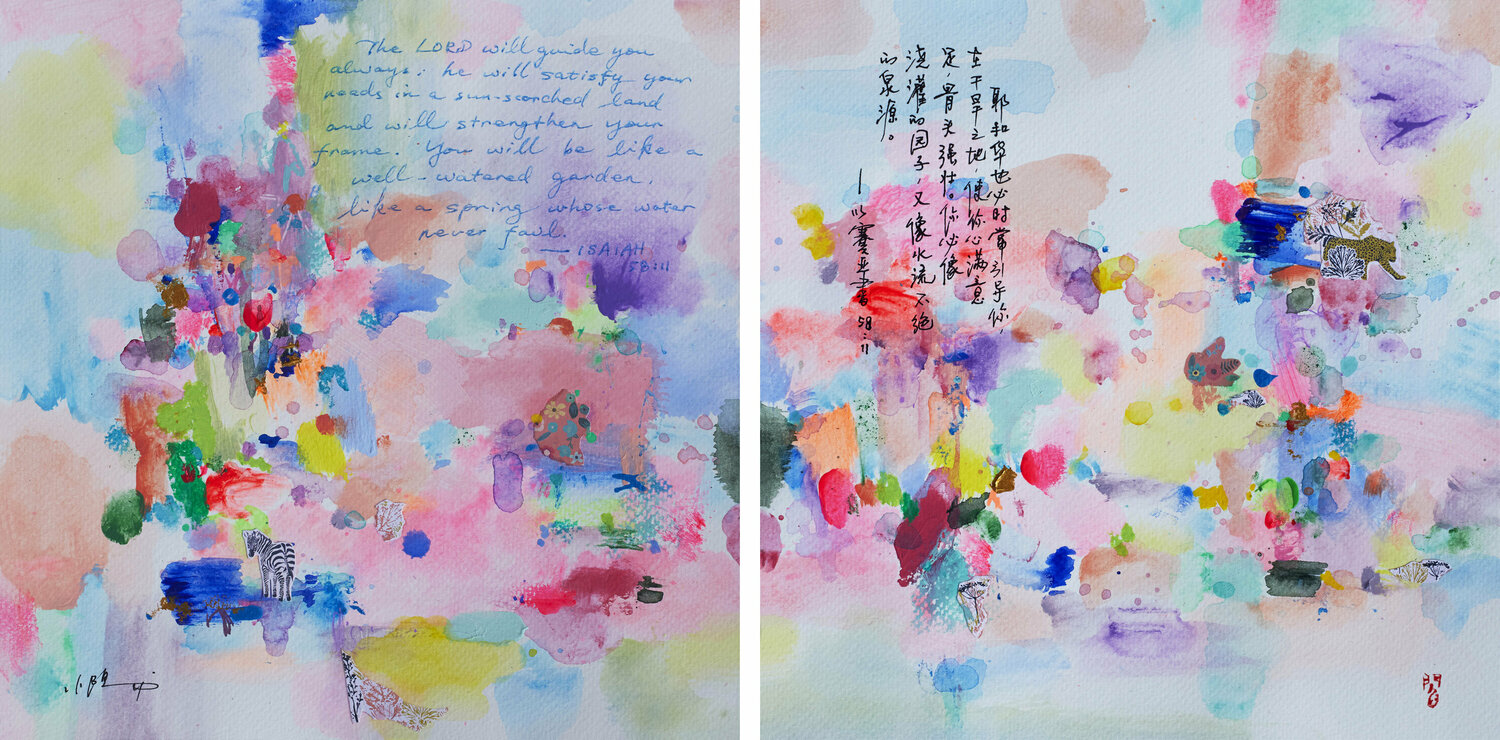 The LORD will guide you
always; he will satisfy your
needs in a sun-scorched land
and will strengthen your
frame. You will be like a
well-watered garden,
like a spring whose water
never fail.
— ISAIAH
58:11
耶和华也必时常引导你，
在干旱之地，使你心满意
足，骨头强壮。你必像
浇灌的园子，又像水流不绝
的泉源。
—以赛亚书 58:11